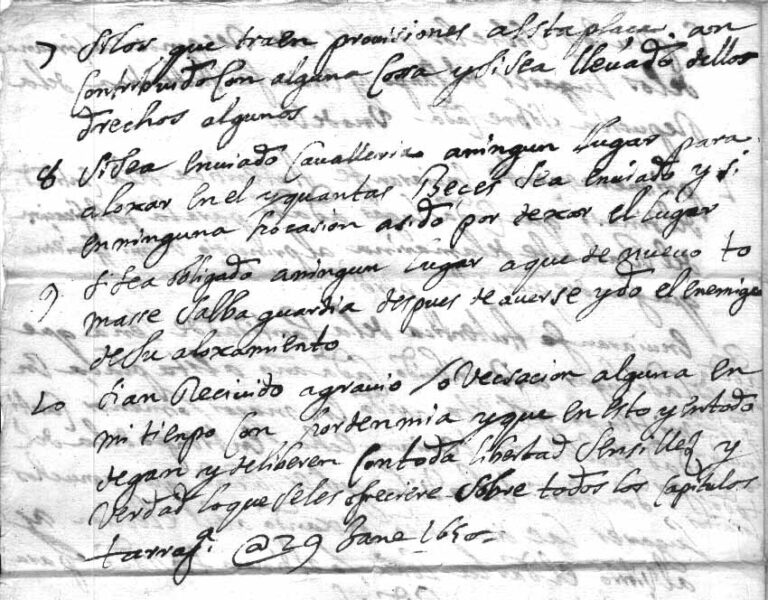 7 Si los que traen provisiones a esta plaça aon
contribuido con alguna cosa y si sea llevado dellos
drechos algunos
8 Si sea enviado Cavalleria aningun lugar para
aloxar en el y quantas Beces sea enviado y si
en ninguna hocasion asido por dexar el lugar
9 Si sea obligado aningun lugar a que de nuevo to
masse salba guardia despues de averse ydo el enemigo
de su aloxamiento
10 Sian Recivido agravio o vecsacion alguna en
mi tienpo con horden mia y que en esto y entodo
degan y deliberen con toda libertad sensillez y
verdad lo que seles ofreciere sobre todos los capitulos
tarrag.ª @ 29 Jane 1650